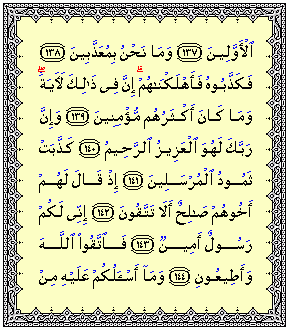 ٱلْأَوَّلِينَ ﴿١٣٧﴾ وَمَا نَحْنُ بِمُعَذَّبِينَ ﴿١٣٨﴾
فَكَذَّبُوهُ فَأَهْلَكْنَٰهُمْ ۗ إِنَّ فِى ذَٰلِكَ لَءَايَةً ۖ
وَمَا كَانَ أَكْثَرُهُم مُّؤْمِنِينَ ﴿١٣٩﴾ وَإِنَّ
رَبَّكَ لَهُوَ ٱلْعَزِيزُ ٱلرَّحِيمُ ﴿١٤٠﴾ كَذَّبَتْ
ثَمُودُ ٱلْمُرْسَلِينَ ﴿١٤١﴾ إِذْ قَالَ لَهُمْ
أَخُوهُمْ صَٰلِحٌ أَلَا تَتَّقُونَ ﴿١٤٢﴾ إِنِّى لَكُمْ
رَسُولٌ أَمِينٌ ﴿١٤٣﴾ فَٱتَّقُوا۟ ٱللَّهَ
وَأَطِيعُونِ ﴿١٤٤﴾ وَمَآ أَسْـَٔلُكُمْ عَلَيْهِ مِنْ